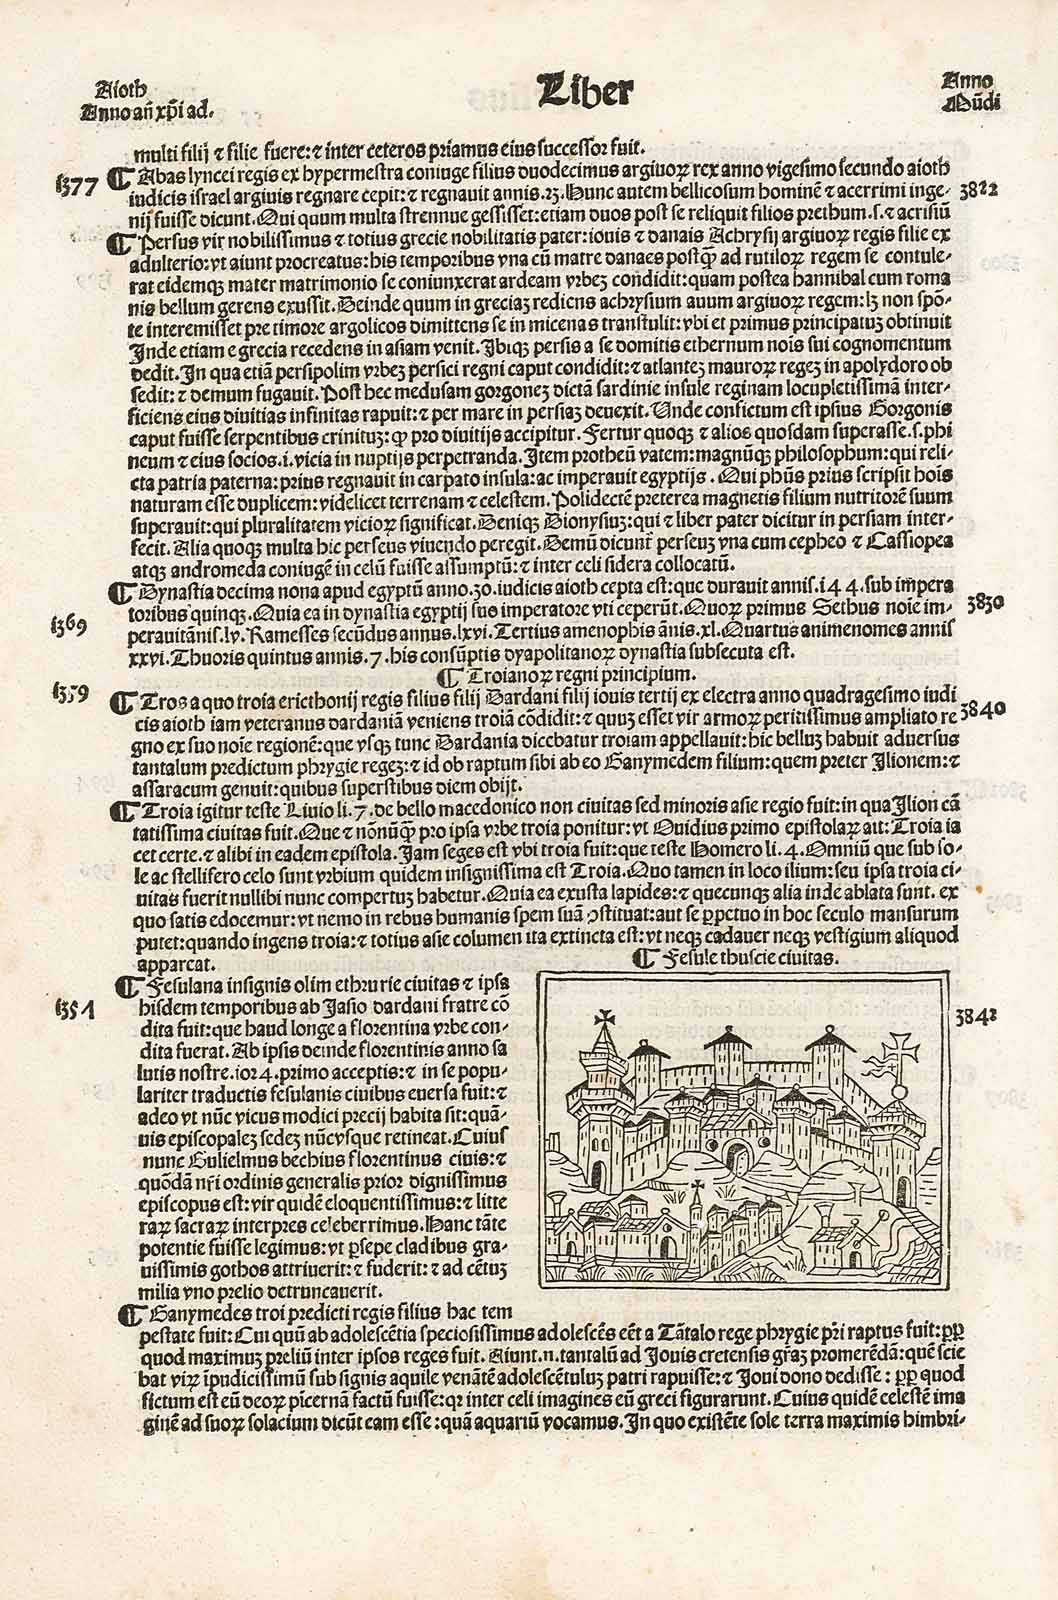 Aioth
Anno an̄ xp̄i ad.
Liber
Anno
Mūdi
multi filij ⁊ filie fuere: ⁊ inter ceteros priamus eius successor fuit.
1377
¶ Abas lyncei regis ex hypermestra coniuge filius duodecimus argiuoꝝ rex anno vigesimo secundo aioth
iudicis israel argiuis regnare cepit: ⁊ regnauit annis .23. Hunc autem bellicosum hominē ⁊ acerrimi inge-
3822
nij fuisse dicunt. Qui quum multa strennue gessisset: etiam duos post se reliquit filios prethum .s. ⁊ acrisiū
¶ Persus vir nobilissimus ⁊ totius grecie nobilitatis pater: iouis ⁊ danais Achrysij argiuoꝝ regis filie ex
adulterio: vt aiunt procreatus: his temporibus vna cū matre danaes postꝙ̄ ad rutiloꝝ regem se contule-
rat eidemqꝫ mater matrimonio se coniunxerat ardeam vrbeꝫ condidit: quam postea hannibal cum roma
nis bellum gerens exussit. Deinde quum in greciaꝫ rediens achrysium auum argiuoꝝ regem: lꝫ non spō-
te interemisset pre timore argolicos dimittens se in micenas transtulit: vbi et primus principatuꝫ obtinuit
Inde etiam e grecia recedens in asiam venit. Ibiqꝫ persis a se domitis ethernum nois sui cognomentum
dedit. In qua etiā persipolim vrbeꝫ persici regni caput condidit: ⁊ atlanteꝫ mauroꝝ regeꝫ in apolydoro ob
sedit: ⁊ demum fugauit. Post hec medusam gorgoneꝫ dictā sardinie insule reginam locupletissimā inter-
ficiens eius diuitias infinitas rapuit: ⁊ per mare in persiaꝫ deuexit. Unde confictum est ipsius Gorgonis
caput fuisse serpentibus crinituꝫ: ꝙ pro diuitijs accipitur. Fertur quoqꝫ ⁊ alios quosdam superasse .s. phi
neum ⁊ eius socios .i. vicia in nuptijs perpetranda. Item protheū vatem: magnūqꝫ philosophum: qui reli-
cta patria paterna: prius regnauit in carpato insula: ac imperauit egyptijs. Qui ph̄us prius scripsit hoīs
naturam esse duplicem: videlicet terrenam ⁊ celestem. Polidectē preterea magnetis filium nutritorē suum
superauit: qui pluralitatem vicioꝝ significat. Deniqꝫ Dionysiuꝫ: qui ⁊ liber pater dicitur in persiam inter-
fecit. Alia quoqꝫ multa hic perseus viuendo peregit. Demū dicunt̄ perseuꝫ vna cum cepheo ⁊ Cassiopea
atqꝫ andromeda coniugē in celū fuisse assumptū: ⁊ inter celi sidera collocatū.
¶ Dynastia decima nona apud egyptū anno .30. iudicis aioth cepta est: que durauit annis .144. sub impera
3830
toribus quinqꝫ. Quia ea in dynastia egyptij sus imperatore vti ceperūt. Quoꝝ primus Sethus noīe im-
1369
perauit ānis .lv. Ramesses secūdus annus .lxvi. Tertius amenophis ānis .xl. Quartus animenomes annis
xxvi. Thuoris quintus annis .7. his consūptis dyapolitanoꝝ dynastia subsecuta est.
¶ Troianoꝝ regni principium.
1359
¶ Tros a quo troia ericthonij regis filius filij Dardani filij iouis tertij ex electra anno quadragesimo iudi
3840
cis aioth iam veteranus dardaniā veniens troiā cōdidit: ⁊ quuꝫ esset vir armoꝝ peritissimus ampliato re
gno ex suo noīe regionē: que vsqꝫ tunc Dardania dicebatur troiam appellauit: hic belluꝫ habuit aduersus
tantalum predictum phrygie regeꝫ: ⁊ id ob raptum sibi ab eo Ganymedem filium: quem preter Jlionem: ⁊
assaracum genuit: quibus superstibus diem obijt.
¶ Troia igitur teste Liuio li. 7. de bello macedonico non ciuitas sed minoris asie regio fuit: in qua Jlion cā
tatissima ciuitas fuit. Que ⁊ nōnūꝙ̄ pro ipsa vrbe troia ponitur: vt Ouidius primo epistolaꝝ ait: Troia ia
cet certe. ⁊ alibi in eadem epistola. Jam seges est vbi troia fuit: que teste Homero li. 4. Omniū que sub so-
le ac stellifero celo sunt vrbium quidem insignissima est Troia. Quo tamen in loco ilium: seu ipsa troia ci-
uitas fuerit nullibi nunc compertuꝫ habetur. Quia ea exusta lapides: ⁊ quecunqꝫ alia inde ablata sunt. ex
quo satis edocemur: vt nemo in rebus humanis spem suā ꝯstituat: aut se ꝑpetuo in hoc seculo mansurum
putet: quando ingens troia: ⁊ totius asie columen ita extincta est: vt neqꝫ cadauer neqꝫ vestigium aliquod
appareat.
¶ Fesule thuscie ciuitas.
¶ Fesulana insignis olim ethrurie ciuitas ⁊ ipsa
1351
hisdem temporibus ab Jasio dardani fratre cō
3842
dita fuit: que haud longe a florentina vrbe con-
dita fuerat. Ab ipsis deinde florentinis anno sa
lutis nostre .1024. primo acceptis: ⁊ in se popu-
lariter traductis fesulanis ciuibus euersa fuit: ⁊
adeo vt nūc vicus modici precij habita sit: quā-
uis episcopaleꝫ sedeꝫ nūcvsque retineat. Cuius
nunc Gulielmus bechius florentinus ciuis: ⁊
quōdā nr̄i ordinis generalis prior dignissimus
episcopus est: vir quidē eloquentissimus: ⁊ litte
raꝝ sacraꝝ interpres celeberrimus. Hanc tāte
potentie fuisse legimus: vt ꝑsepe cladibus gra-
uissimis gothos attriuerit: ⁊ fuderit: ⁊ ad cētuꝫ
milia vno prelio detruncauerit.
¶ Ganymedes troi predicti regis filius hac tem
pestate fuit: Cui quū ab adolescētia speciosissimus adolescēs eēt a Tātalo rege phrygie pr̄i raptus fuit: ꝓpꝑ
quod maximuꝫ preliū inter ipsos reges fuit. Aiunt .n. tantalū ad Jouis cretensis gr̄aꝫ promerēdā: quē scie
bat viꝝ īpudicissimū sub signis aquile venātē adolescētuluꝫ patri rapuisse: ⁊ Joui dono dedisse: ꝓpꝑ quod
fictum est eū deoꝝ picernā factū fuisse: qr inter celi imagines eū greci figurarunt. Cuius quidē celestē ima
ginē ad suoꝝ solacium dicūt eam esse: quā aquariū vocamus. In quo existēte sole terra maximis himbri-